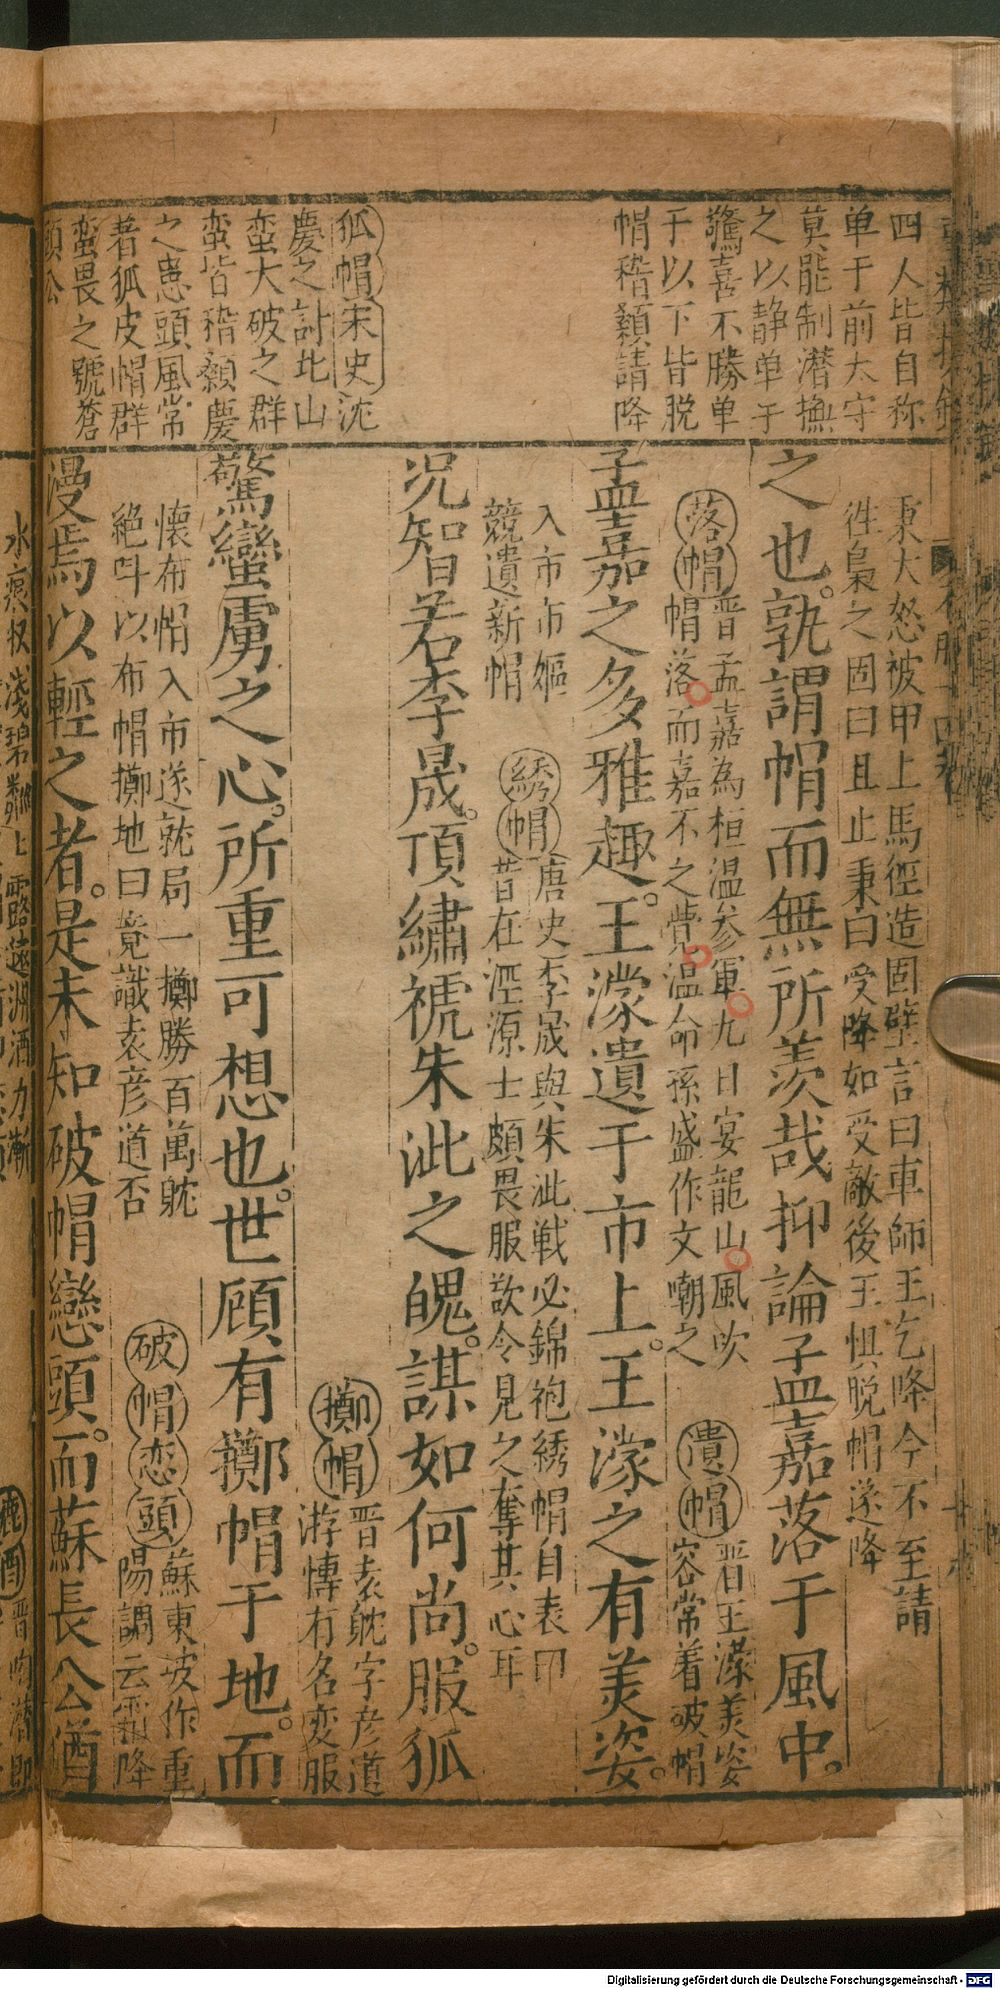 四人皆自称
单于前大守
莫能制潜撫
之以静单于
驚喜不勝单
于以下皆脱
帽稽顙請降
狐帽宋史沈
慶之討北山
蛮大破之群
蛮皆稽顙慶
之患頭風常
著狐皮帽群
蛮畏之號蒼
頭公
秉大怒被甲上馬徑造固壁言曰車師王乞降今不至請
徃梟之固曰且止秉曰受降如受敵後王惧脱帽遂降
之也。孰謂帽而無所羡哉抑論孟嘉落于風中。
落帽晋孟嘉為桓温参軍九日宴龍山風吹
帽落而嘉不之覺温命孫盛作文嘲之
遺帽晋王濛美姿
容常着破帽
孟嘉之多雅趣。王濛遺于市上。王濛之有美姿。
入市市嫗
競遺新帽
綉帽唐史李晟與朱泚戦必錦袍綉帽自表曰
昔在涇源士頗畏服欲令見之奪其心耳
况智若李晟。頂繡褫朱泚之魄。謀如何尚。服狐
擲帽晋袁躭字彦道
游愽有名変服
驚蠻虜之心。所重可想也。世顧有擲帽于地。而
懐布帽入市遂就局一擲勝百萬躭
絶呌以布帽擲地曰竟識袁彦道否
破帽恋頭蘇東坡作重
陽調云霜降
漫焉以輕之者。是未知破帽戀頭。而蘇長公酒
水痕収淺碧鄰上露遠洲酒力漸
Digitalisierung gefördert durch die Deutsche Forschungsgemeinschaft - DFG